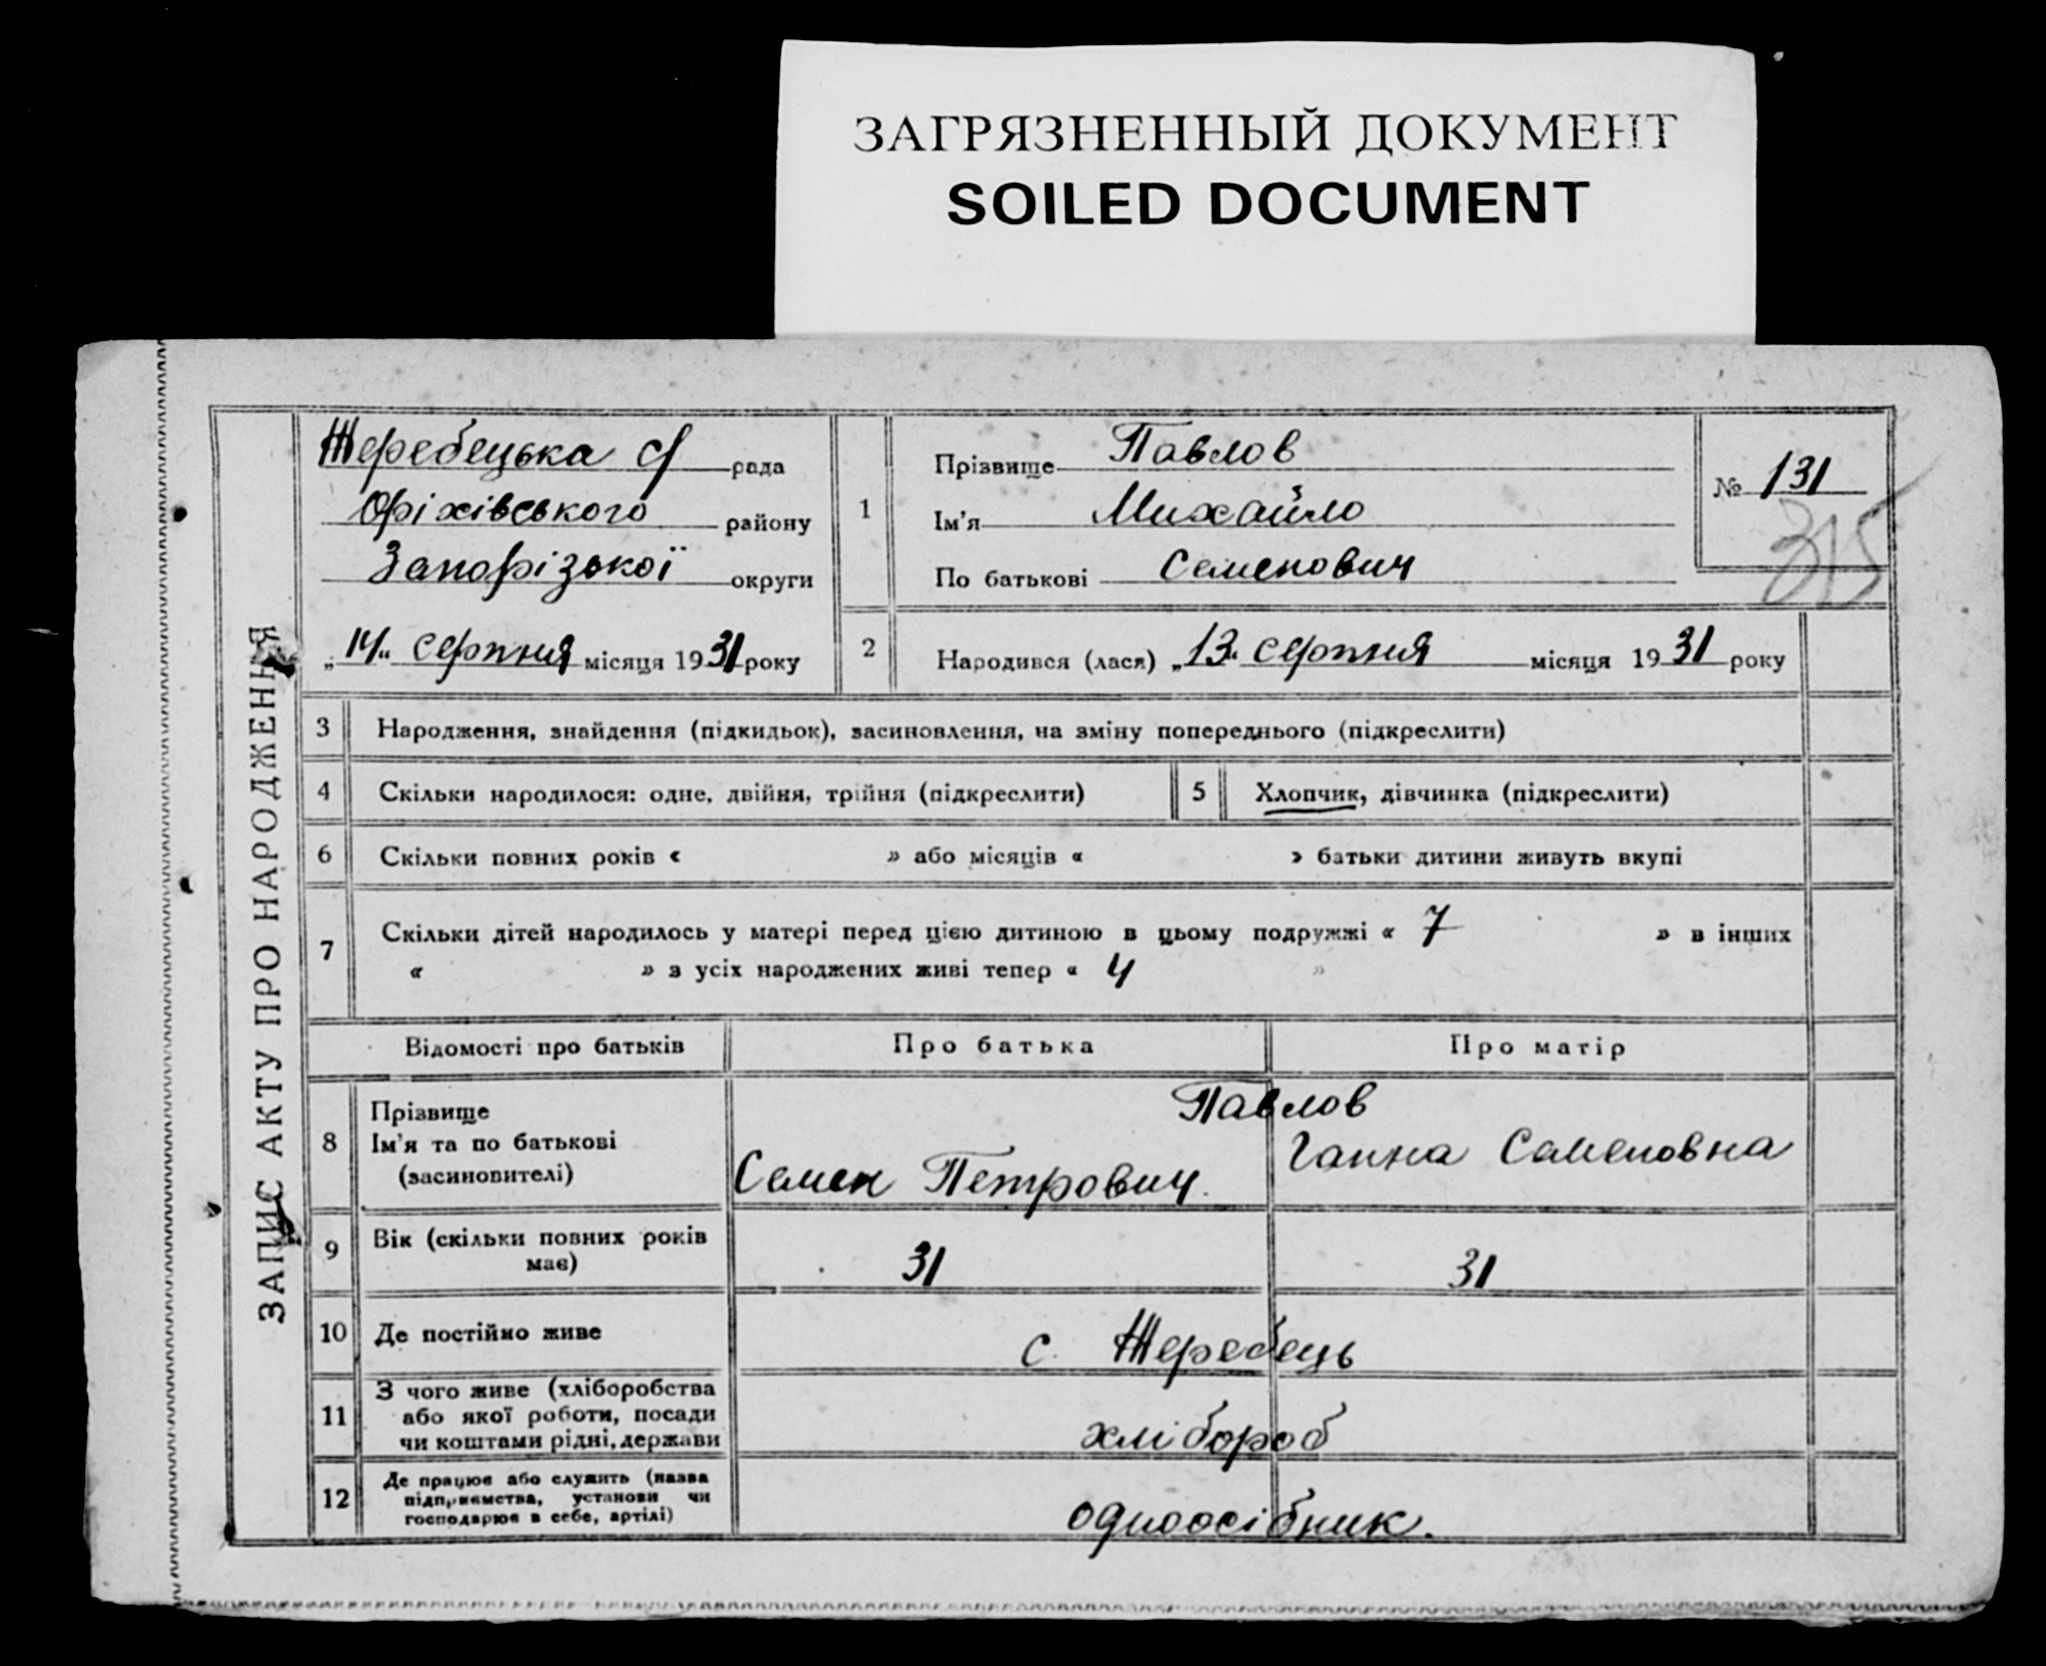 ЗАГРЯЗНЕННЫЙ ДОКУМЕНТ
SOILED DOCUMENT
ЗАПИС АКТУ ПРО НАРОДЖЕННЯ
Жеребецька с/ рада
Оріхівського району
Запорізької округи
„14" серпня місяця 1931 року
1
Прізвище Павлов
Ім'я Михайло
По батькові Семенович
№ 131
315
2 Народився (лася) „13" серпня місяця 1931 року
3 Народження, знайдення (підкидьок), засиновлення, на зміну попереднього (підкреслити)
4 Скільки народилося: одне, двійня, трійня (підкреслити)
5 Хлопчик, дівчинка (підкреслити)
6 Скільки повних років « » або місяців « » батьки дитини живуть вкупі
7 Скільки дітей народилось у матері перед цією дитиною в цьому подружжі « 7 » в інших
« » з усіх народжених живі тепер « 4 »
Відомості про батьків Про батька Про матір
8 Прізвище
Ім'я та по батькові
(засиновителі)
Павлов
Семен Петрович.
Ганна Семеновна
9 Вік (скільки повних років
має)
31 31
10 Де постійно живе с. Жеребець
11 З чого живе (хліборобства
або якої роботи, посади
чи коштами рідні, держави
хлібороб
12 Де працює або служить (назва
підприємства, установи чи
господарює в себе, артілі)
одноосібник.